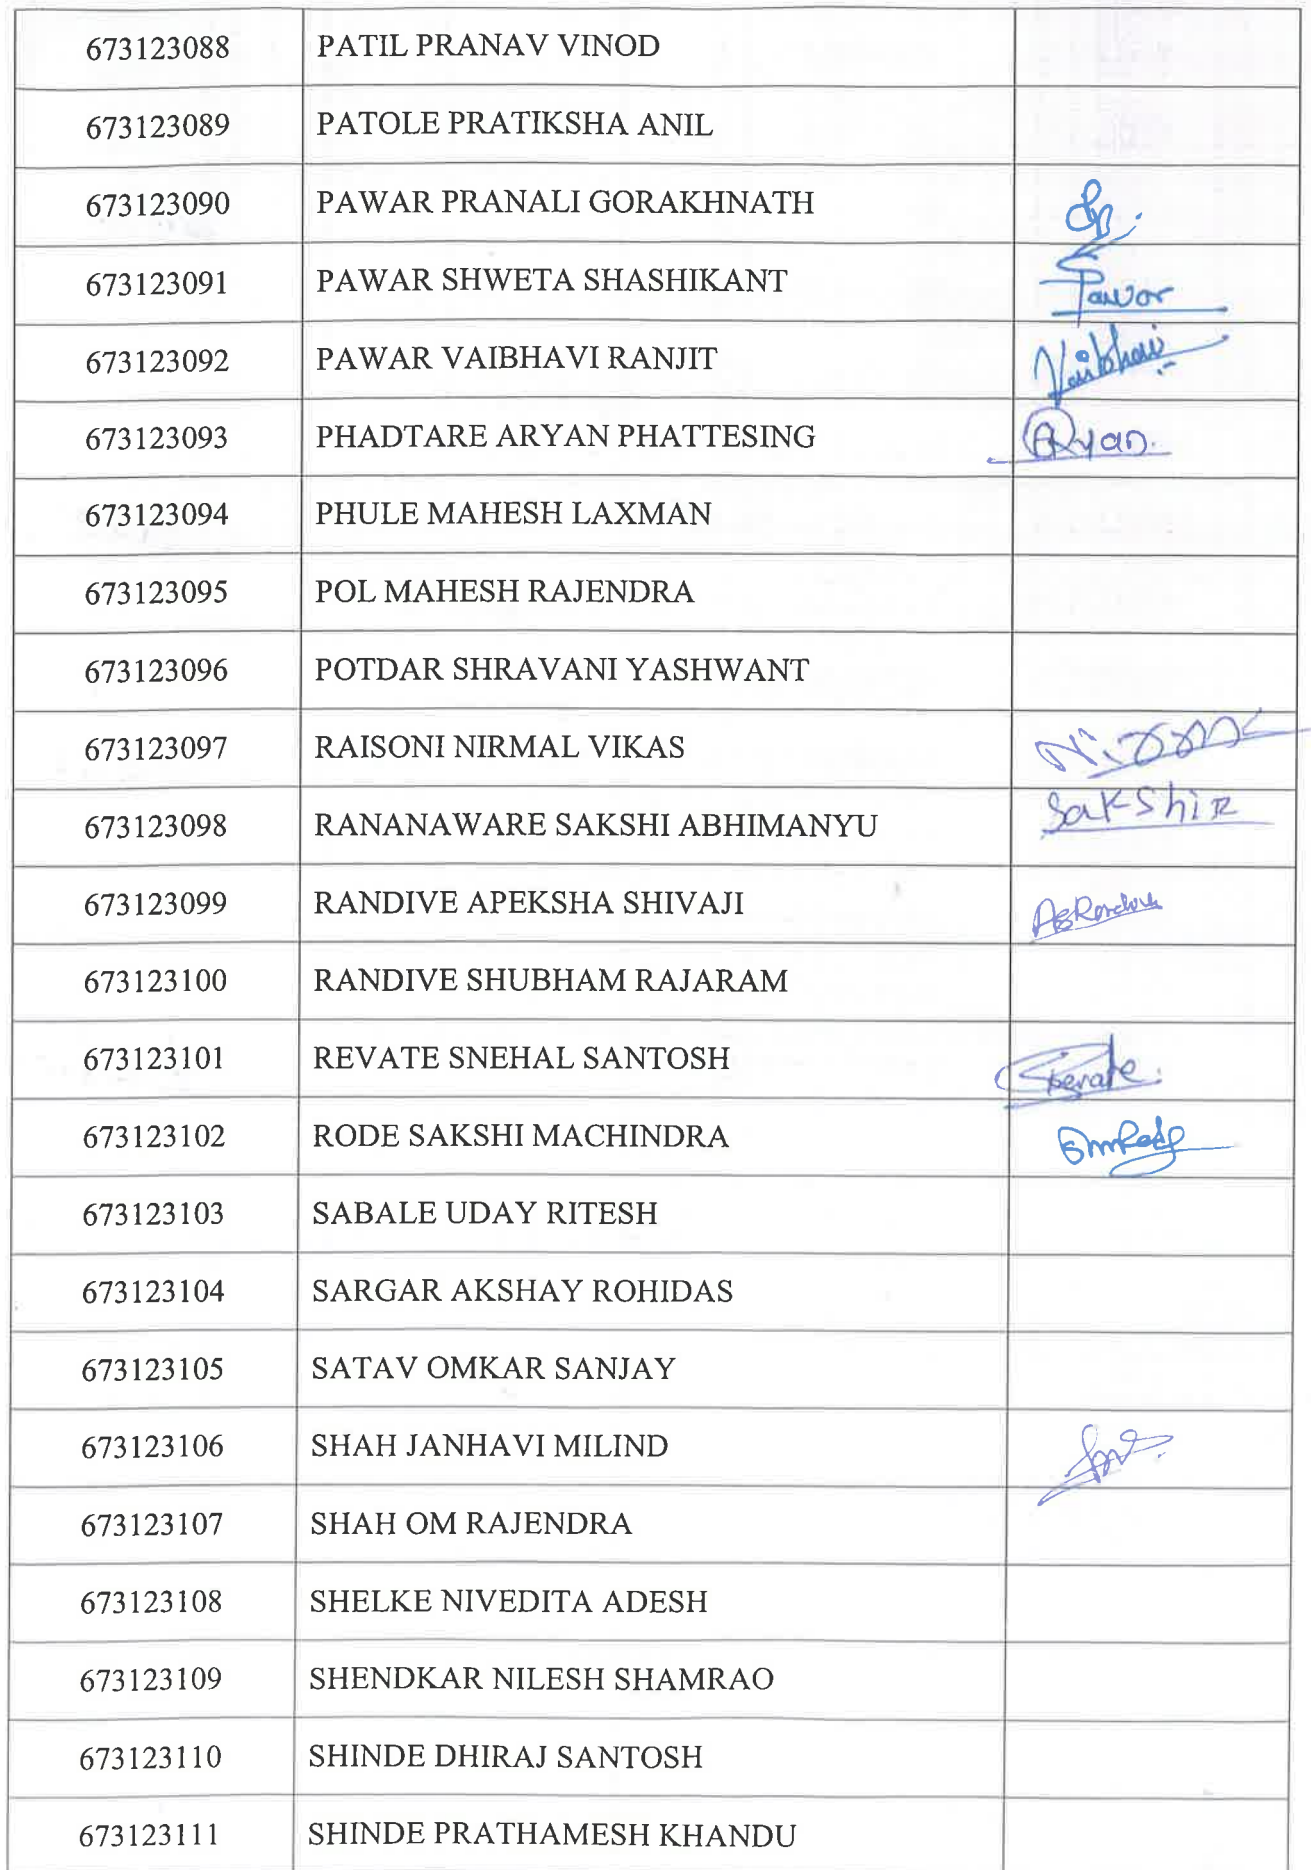 673123088 PATIL PRANAV VINOD
673123089 PATOLE PRATIKSHA ANIL
673123090 PAWAR PRANALI GORAKHNATH
673123091 PAWAR SHWETA SHASHIKANT Pawar
673123092 PAWAR VAIBHAVI RANJIT Vaibhavi
673123093 PHADTARE ARYAN PHATTESING Aryan.
673123094 PHULE MAHESH LAXMAN
673123095 POL MAHESH RAJENDRA
673123096 POTDAR SHRAVANI YASHWANT
673123097 RAISONI NIRMAL VIKAS
673123098 RANANAWARE SAKSHI ABHIMANYU Sakshi R
673123099 RANDIVE APEKSHA SHIVAJI
673123100 RANDIVE SHUBHAM RAJARAM
673123101 REVATE SNEHAL SANTOSH
673123102 RODE SAKSHI MACHINDRA
673123103 SABALE UDAY RITESH
673123104 SARGAR AKSHAY ROHIDAS
673123105 SATAV OMKAR SANJAY
673123106 SHAH JANHAVI MILIND
673123107 SHAH OM RAJENDRA
673123108 SHELKE NIVEDITA ADESH
673123109 SHENDKAR NILESH SHAMRAO
673123110 SHINDE DHIRAJ SANTOSH
673123111 SHINDE PRATHAMESH KHANDU